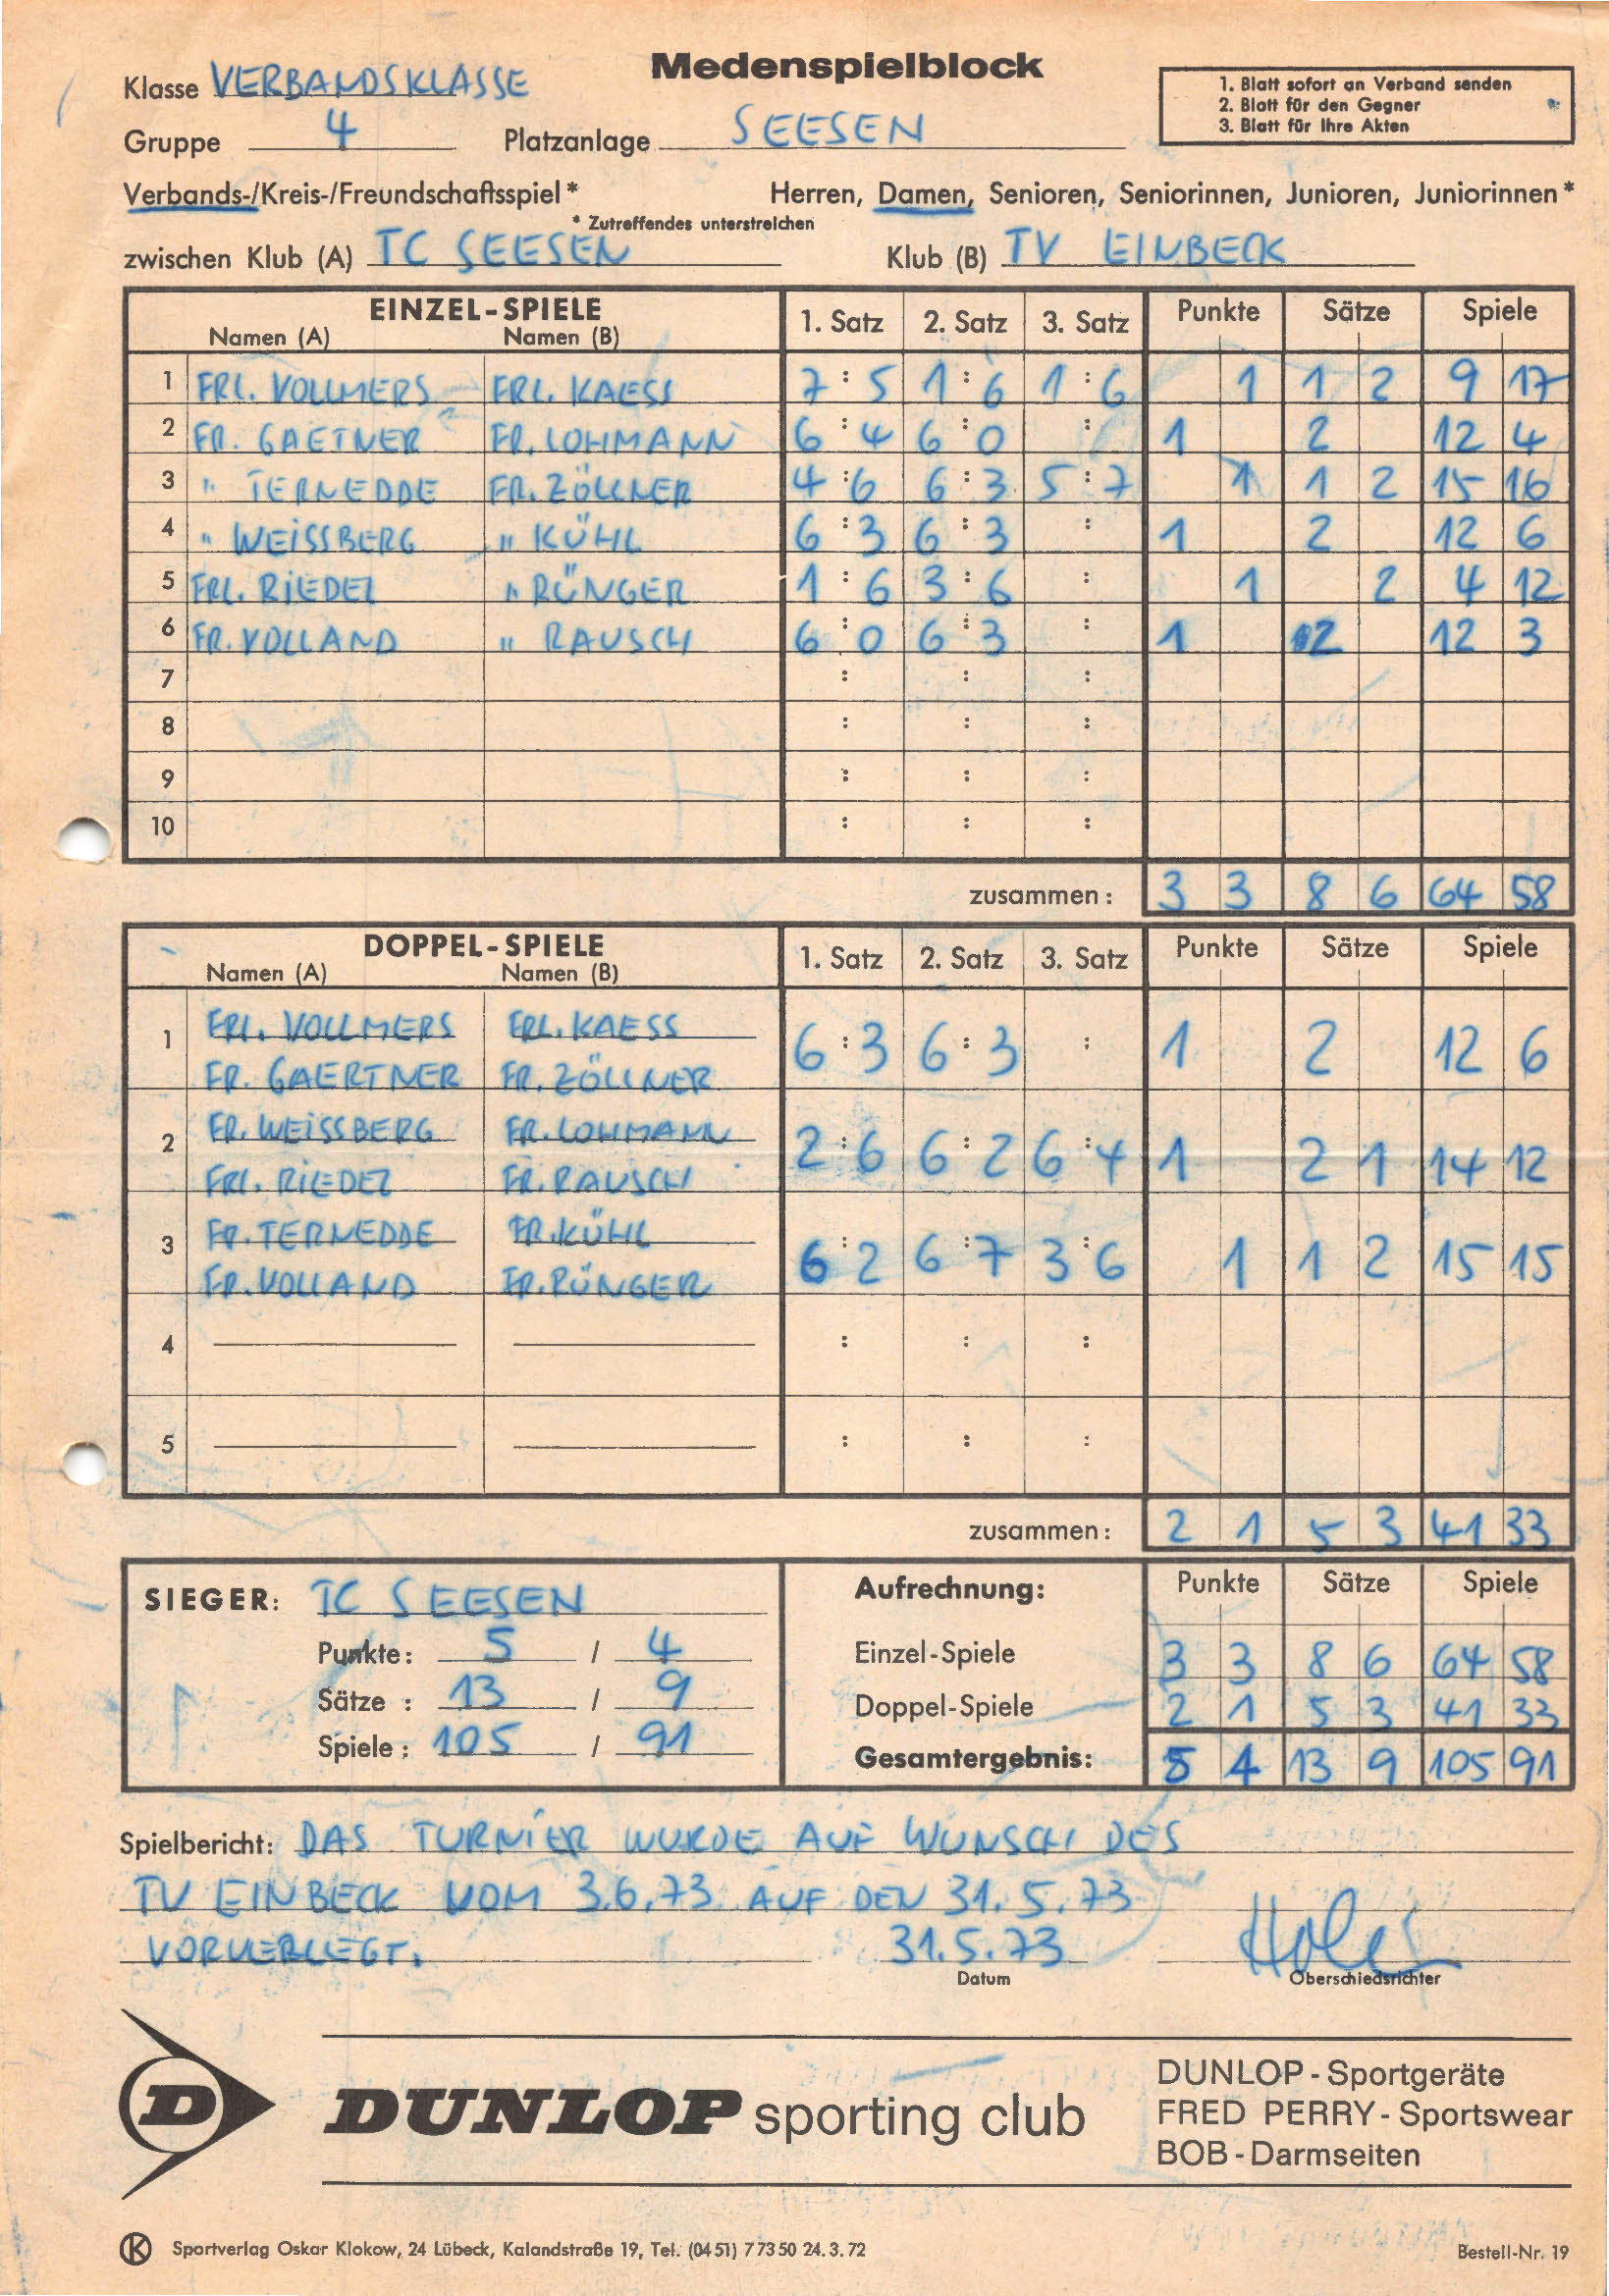 Medenspielblock
Klasse VERBANDSKLASSE
1. Blatt sofort an Verband senden
2. Blatt für den Gegner
3. Blatt für Ihre Akten
Gruppe 4 Platzanlage SEESEN
Verbands-/Kreis-/Freundschaftsspiel* Herren, Damen, Senioren, Seniorinnen, Junioren, Juniorinnen*
* Zutreffendes unterstreichen
zwischen Klub (A) TC SEESEN Klub (B) TV EINBECK
EINZEL-SPIELE 1. Satz 2. Satz 3. Satz Punkte Sätze Spiele
Namen (A) Namen (B)
1 FRL. VOLLMERS FRL. KAESS 7:5 1:6 1:6 1 1 2 9 17
2 FR. GAETNER FR. LOHMANN 6:4 6:0 : 1 2 12 4
3 " TERNEDDE FR. ZÖLLNER 4:6 6:3 5:7 1 1 2 15 16
4 " WEISSBERG " KÜHL 6:3 6:3 : 1 2 12 6
5 FRL. RIEDEL " RÜNGER 1:6 3:6 : 1 2 4 12
6 FR. VOLLAND " RAUSCH 6:0 6:3 : 1 2 12 3
7 : : :
8 : : :
9 : : :
10 : : :
zusammen: 3 3 8 6 64 58
DOPPEL-SPIELE 1. Satz 2. Satz 3. Satz Punkte Sätze Spiele
Namen (A) Namen (B)
FRL. VOLLMERS FRL. KAESS
1 6:3 6:3 : 1 2 12 6
FR. GAERTNER FR. ZÖLLNER
FR. WEISSBERG FR. LOHMANN
2 2:6 6:2 6:4 1 2 1 14 12
FRL. RIEDEL FR. RAUSCH
FR. TERNEDDE FR. KÜHL
3 6:2 6:7 3:6 1 1 2 15 15
FR. VOLLAND FR. RÜNGER
4 : : :
5 : : :
zusammen: 2 1 5 3 41 33
SIEGER: TC SEESEN Aufrechnung: Punkte Sätze Spiele
Punkte: 5 / 4 Einzel-Spiele 3 3 8 6 64 58
Sätze : 13 / 9 Doppel-Spiele 2 1 5 3 41 33
Spiele: 105 / 91 Gesamtergebnis: 5 4 13 9 105 91
Spielbericht: DAS TURNIER WURDE AUF WUNSCH DES
TV EINBECK VOM 3.6.73 AUF DEN 31.5.73
VORVERLEGT. 31.5.73
Datum Oberschiedsrichter
D DUNLOP sporting club
DUNLOP - Sportgeräte
FRED PERRY - Sportswear
BOB - Darmseiten
K Sportverlag Oskar Klokow, 24 Lübeck, Kalandstraße 19, Tel. (0451) 77350 24.3.72 Bestell-Nr. 19